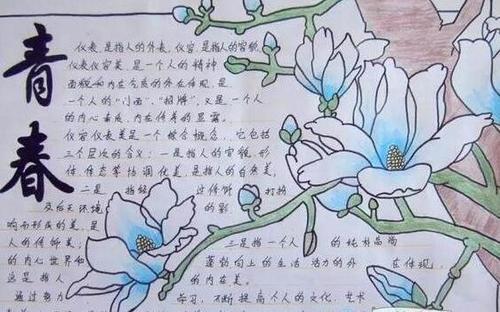 青春
仪表,是指人的外表,仪容,是指人的容貌
仪表仪容美,是一个人的精神
面貌和内在气质的外在体现,是
一个人的“门面”,“招牌”,又是一个人
的内心素质,内在修养的显露。
仪容仪表美是一个综合概念,它包括
三个层次的含义:一是指人的容貌,形
体,体态等协调优美,是指人的自然美,
二是 指经 过修饰 打扮
及后天环境 的影
响而形成的美,是
人的修饰美; 三是指一个人 的纯朴品尚
的内心世界和 蓬勃向上的生活 活力的外 在体现,
这是指人 的内在美。
通过努力 学习,不断提高个人的文化,艺术